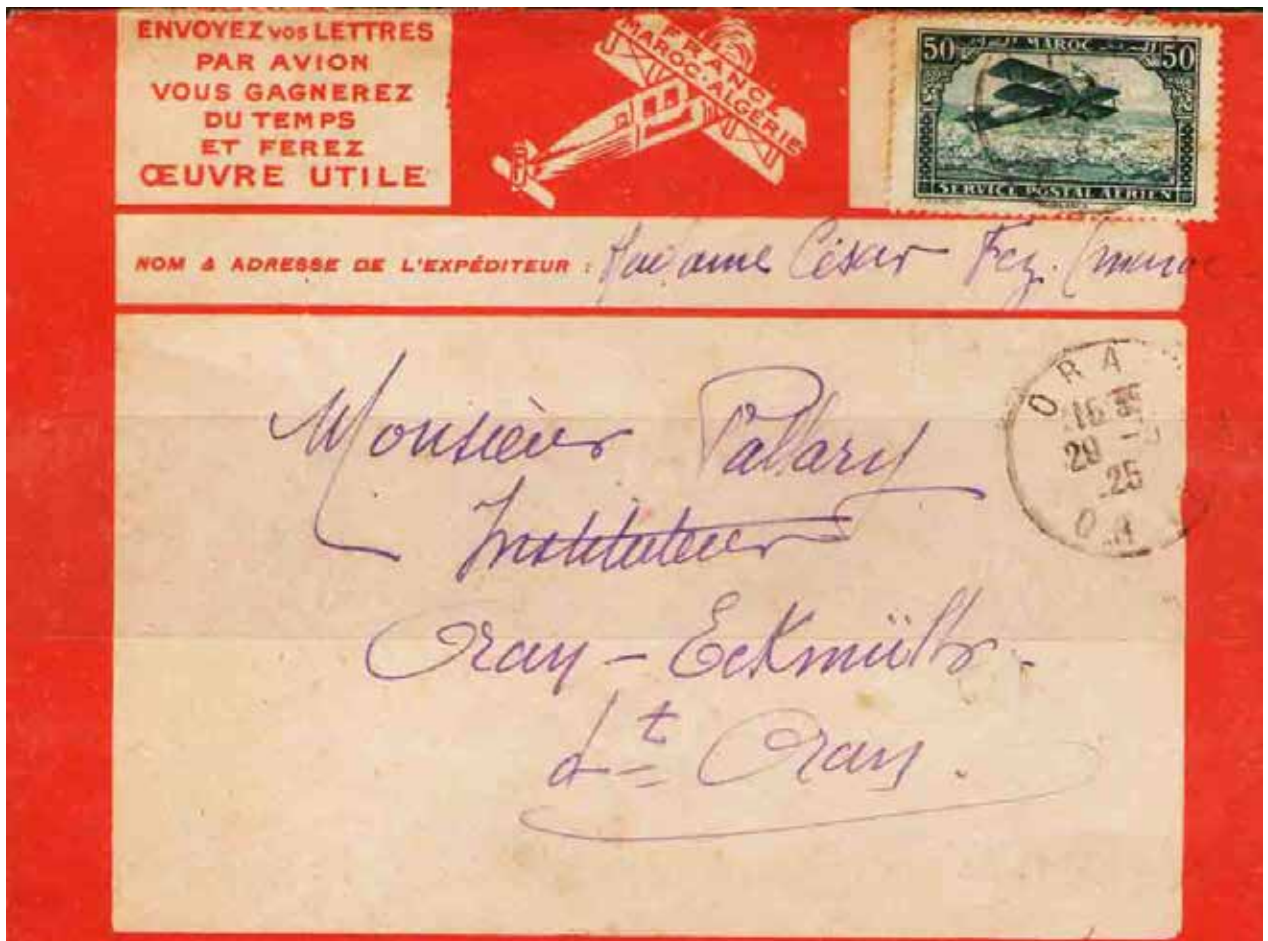 ENVOYEZ VOS LETTRES
PAR AVION
VOUS GAGNEREZ
DU TEMPS
ET FEREZ
ŒUVRE UTILE
FRANCE
MAROC-ALGÉRIE
50 MAROC 50
SERVICE POSTAL AÉRIEN
NOM & ADRESSE DE L'EXPÉDITEUR : Madame César Fez. (maroc
ORA
25
Monsieur Pallary
Instituteur
Oran - Eckmühl
dt Oran.